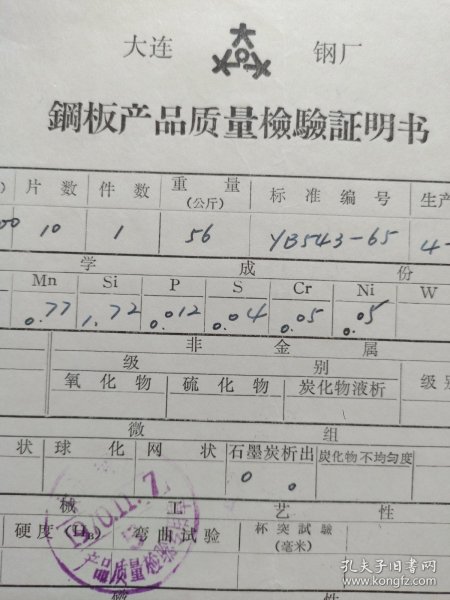 大连 钢厂
鋼板产品质量檢驗証明书
片数 件数 重量 (公斤) 标准编号 生产
00 10 1 56 YB543-65 4-
学成份
Mn Si P S Cr Ni W
0.77 1.72 0.012 0.04 0.05 0.05
非金属
级别
氧化物 硫化物 炭化物液析 级别
微组
状 球化 网状 石墨炭析出 炭化物不均匀度
0 0
械工艺性
硬度(HB) 弯曲试验 杯突試驗 (毫米)
产品质量检验
性
孔夫子旧书网